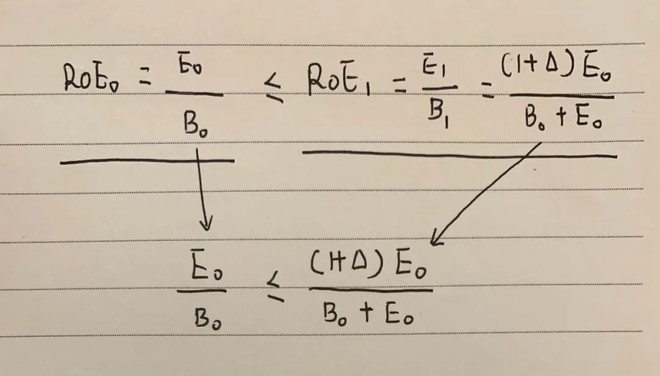 RoE₀ = E₀/B₀ ≤ RoE₁ = E₁/B₁ = (1+Δ)E₀/(B₀+E₀)
E₀/B₀ ≤ (1+Δ)E₀/(B₀+E₀)